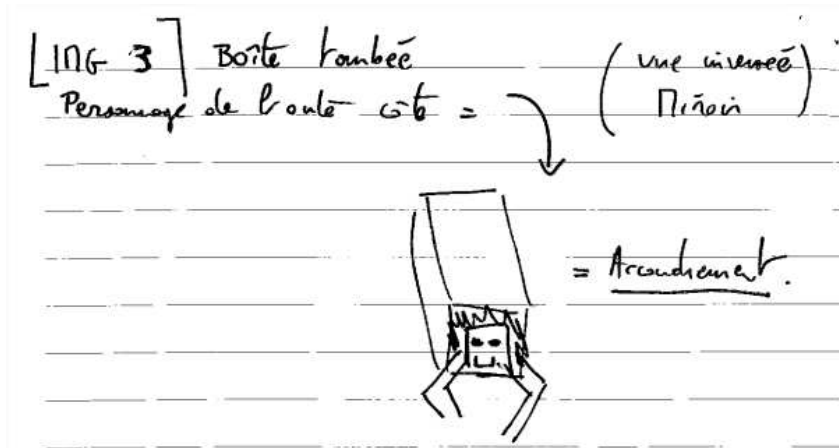 [IMG 3] Boîte tombée
Personnage de l'autre côté =
(vue inversée
Miroir)
= Accouchement.